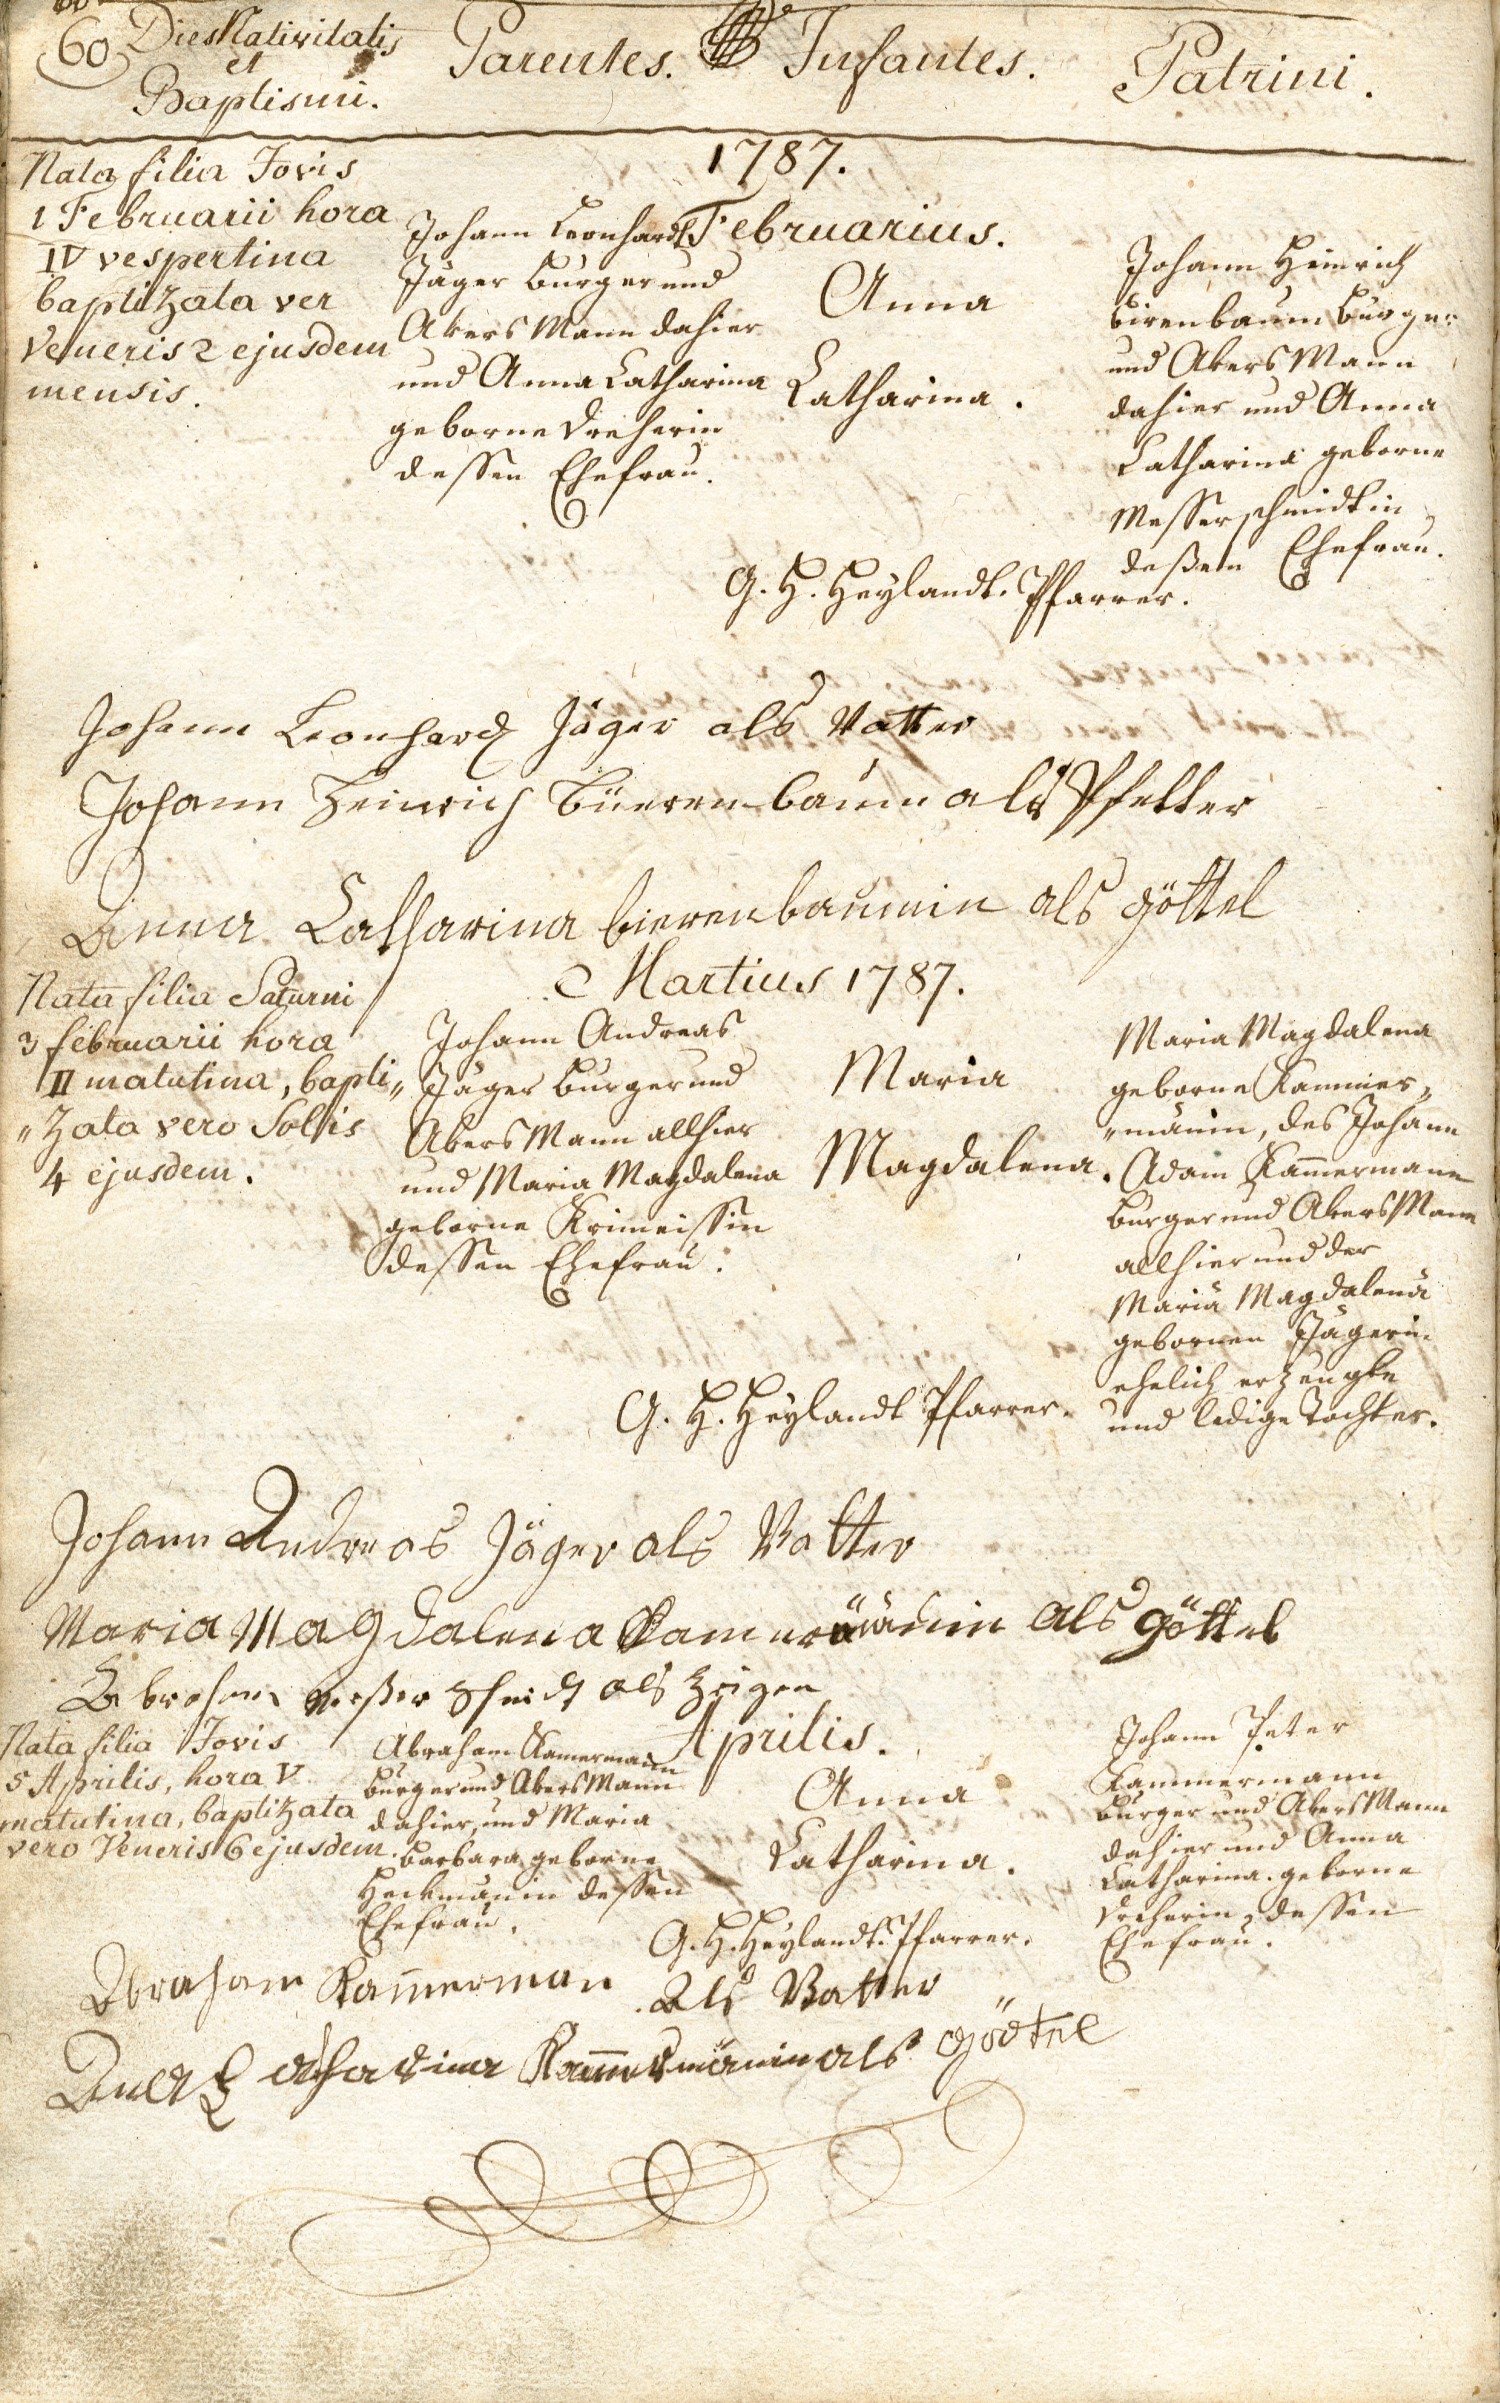 60
Dies Nativitatis
et
Baptismi.
Parentes.
Infantes.
Patrini.
1787.
Februarius.
Nata filia Jovis
1 Februarii hora
IV vespertina
baptizata ver
Veneris 2 ejusdem
mensis.
Johann Leonhardt
Jäger burger und
AkersMann dahier
und Anna Catharina
geborne Dreherin
dessen Ehefrau.
Anna
Catharina.
Johann Heinrich
Birenbaum burger
und AkersMann
dahier und Anna
Catharina geborne
Messerschmidtin
deßen Ehefrau.
G. H. Heylandt. Pfarrer.
Johann Leonhard Jäger als Vatter
Johann Heinrich Büerenbaum als Pfetter
Anna Catharina bierenbaumin als göttel
Martius 1787.
Nata filia Saturni
3 februarii hora
II matutina, bapti„
„zata vero Solis
4 ejusdem.
Johann Andreas
Jäger burger und
AkersMann allhier
und Maria Magdalena
geborne Krimeissin
dessen Ehefrau.
Maria
Magdalena.
Maria Magdalena
geborne Kammer„
„mänin, des Johann
Adam Kam̅ermann
burger und AkersMann
allhier und der
Mariä Magdalenä
gebornen Jägerin
ehelich erzeugte
und ledige Tochter.
G. H. Heylandt Pfarrer.
Johann Andreas Jäger als Vatter
Maria Magdalena als göttel
als Zeigen
Aprilis.
Nata filia Jovis
5 Aprilis, hora V
matutina, baptizata
vero Veneris 6 ejusdem.
Abraham Kamermann
burger und AkersMann
dahier, und Maria
Barbara geborne
Heckmänin dessen
Ehefrau.
Anna
Catharina.
Johann Peter
Kammermann
burger und AkersMann
dahier und Anna
Catharina. geborne
Dreherin, dessen
Ehefrau.
G. H. Heylandt. Pfarrer.
Abraham Kam̅erman Als Vatter
Kam̅ermänin als götel